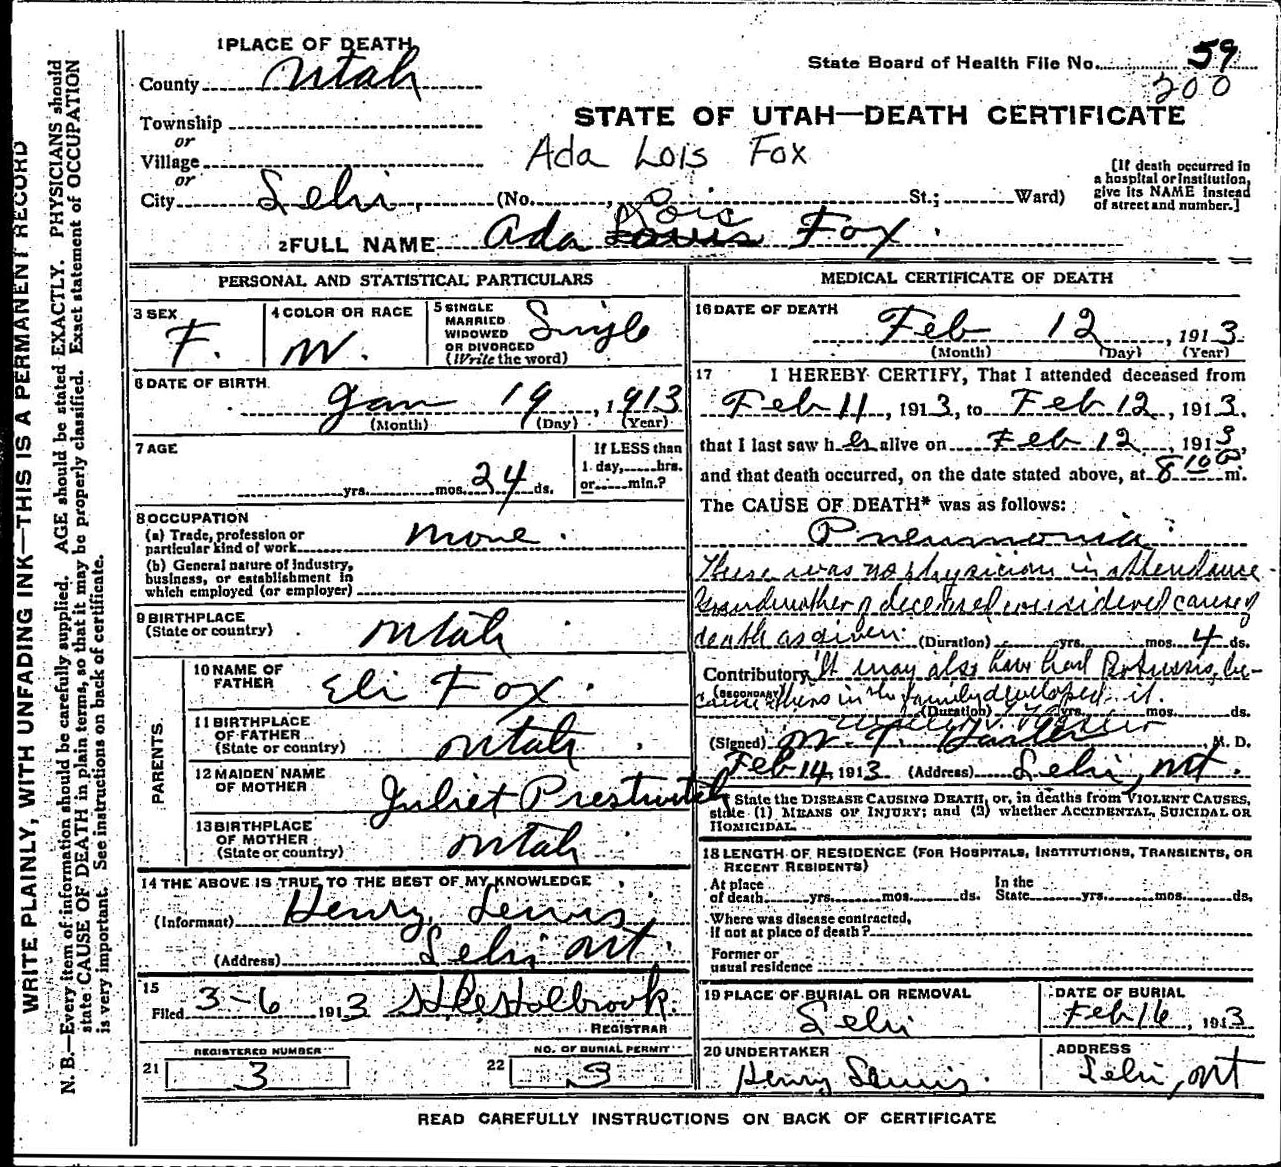 WRITE PLAINLY, WITH UNFADING INK—THIS IS A PERMANENT RECORD
N. B.—Every item of information should be carefully supplied. AGE should be stated EXACTLY. PHYSICIANS should
state CAUSE OF DEATH in plain terms, so that it may be properly classified. Exact statement of OCCUPATION
is very important. See instructions on back of certificate.
1 PLACE OF DEATH
County Utah
State Board of Health File No. 59
200
STATE OF UTAH—DEATH CERTIFICATE
Township
or
Village
or
Ada Lois Fox
[If death occurred in
a hospital or institution,
give its NAME instead
of street and number.]
City Lehi, (No. St.; Ward)
Lois
2 FULL NAME Ada Louis Fox.
PERSONAL AND STATISTICAL PARTICULARS
3 SEX F.
4 COLOR OR RACE W.
5 SINGLE
MARRIED
WIDOWED
OR DIVORCED
(Write the word)
Single
6 DATE OF BIRTH
Jan 19, 1913
(Month) (Day) (Year)
7 AGE
yrs. mos. 24 ds.
If LESS than
1 day, hrs.
or min.?
8 OCCUPATION
(a) Trade, profession or
particular kind of work None.
(b) General nature of industry,
business, or establishment in
which employed (or employer)
9 BIRTHPLACE
(State or country) Utah
PARENTS
10 NAME OF
FATHER Eli Fox.
11 BIRTHPLACE
OF FATHER
(State or country) Utah
12 MAIDEN NAME
OF MOTHER Juliet Prestwich
13 BIRTHPLACE
OF MOTHER
(State or country) Utah
14 THE ABOVE IS TRUE TO THE BEST OF MY KNOWLEDGE
(Informant) Henry Lewis,
(Address) Lehi, Ut.
15
Filed 3-6 1913 Holbrook.
REGISTRAR
21 REGISTERED NUMBER
3
22 NO. OF BURIAL PERMIT
3
MEDICAL CERTIFICATE OF DEATH
16 DATE OF DEATH
Feb 12, 1913
(Month) (Day) (Year)
17 I HEREBY CERTIFY, That I attended deceased from
Feb 11, 1913, to Feb 12, 1913.
that I last saw her alive on Feb 12, 1913,
and that death occurred, on the date stated above, at 8 10 a m.
The CAUSE OF DEATH* was as follows:
Pneumonia:
There was no physician in attendance
Grandmother of deceased considered cause of
death as given. (Duration) yrs. mos. 4 ds.
Contributory It may also have had Pertussis, be-
(SECONDARY) cause others in the family developed it.
(Duration) yrs. mos. ds.
(Signed) W. T. M. D.
Feb 14, 1913 (Address) Lehi, Ut.
State the DISEASE CAUSING DEATH, or, in deaths from VIOLENT CAUSES,
state (1) MEANS OF INJURY; and (2) whether ACCIDENTAL, SUICIDAL OR
HOMICIDAL.
18 LENGTH OF RESIDENCE (FOR HOSPITALS, INSTITUTIONS, TRANSIENTS, OR
RECENT RESIDENTS)
At place
of death yrs. mos. ds.
In the
State yrs. mos. ds.
Where was disease contracted,
if not at place of death?
Former or
usual residence
19 PLACE OF BURIAL OR REMOVAL
Lehi
DATE OF BURIAL
Feb 16, 1913
20 UNDERTAKER
Henry Lewis.
ADDRESS
Lehi, Ut
READ CAREFULLY INSTRUCTIONS ON BACK OF CERTIFICATE